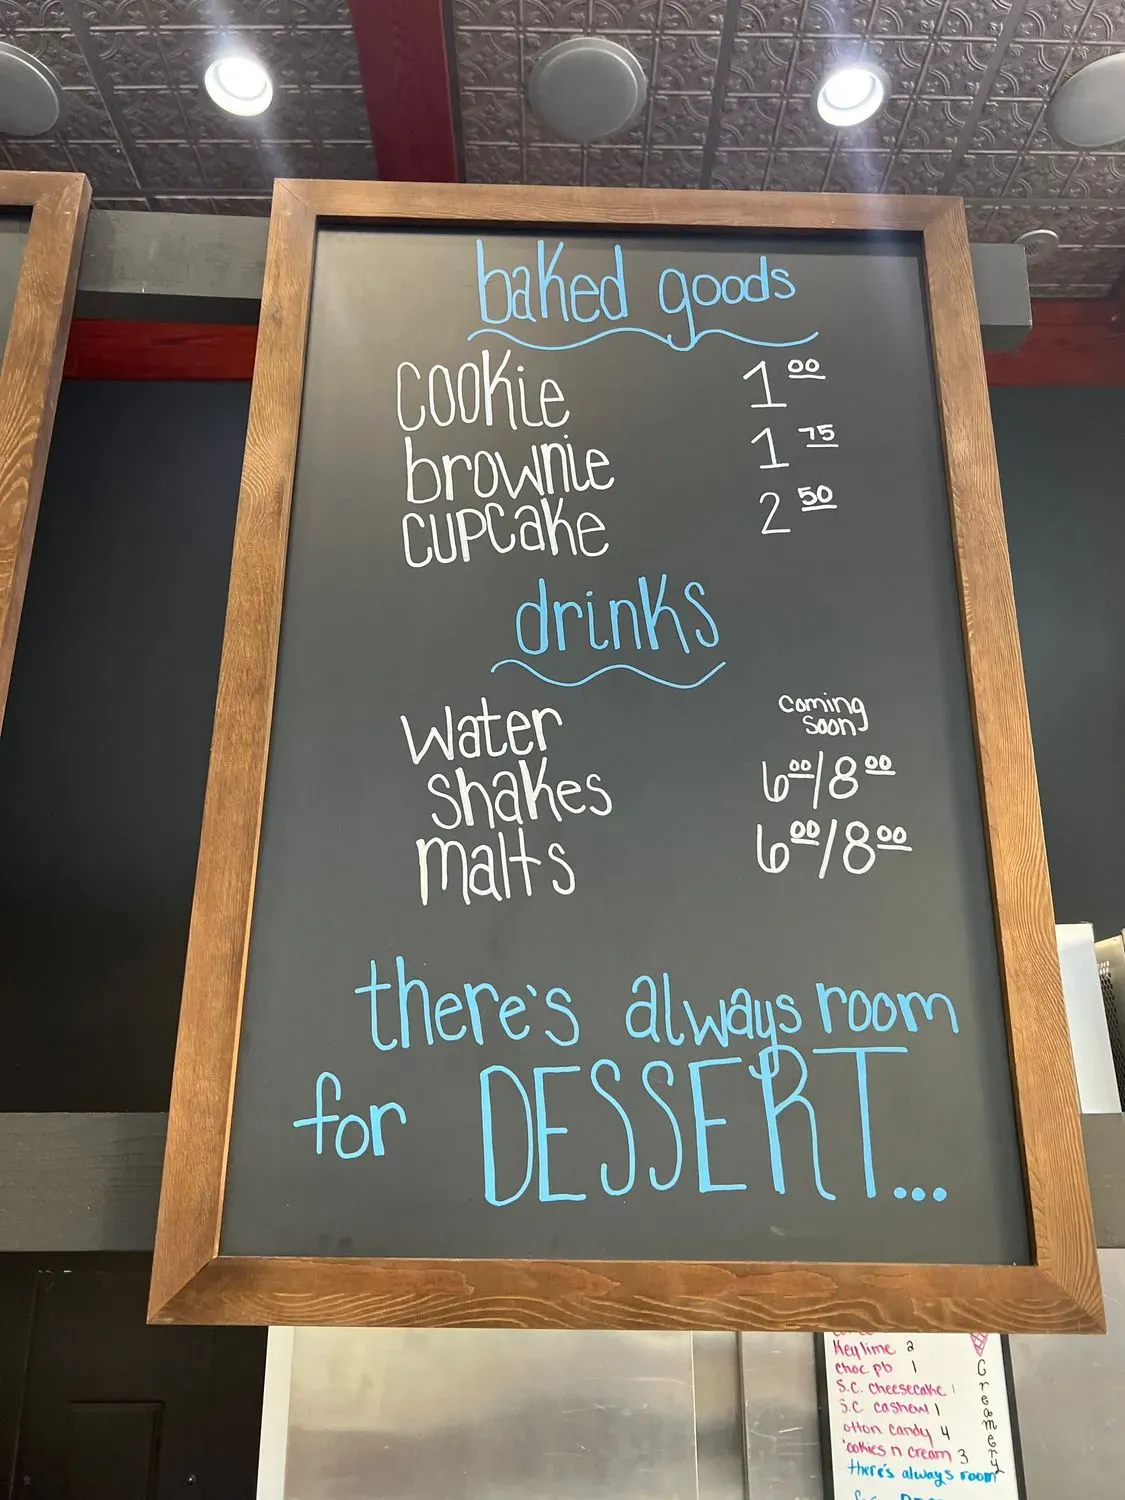 baked goods
cookie 1 00
brownie 1 75
cupcake 2 50
drinks
water coming soon
shakes 6 00/8 00
malts 6 00/8 00
there's always room
for DESSERT...
Key lime 2
choc pb 1
S.C. cheesecake 1
S.C cashew 1
otton candy 4
ookies n cream 3
there's always room
Creamery